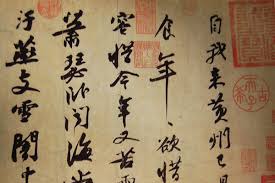 自我來黃州已
食年〻欲惜
容惜今年又苦
蕭瑟卧聞海棠
汙燕支雪闇中